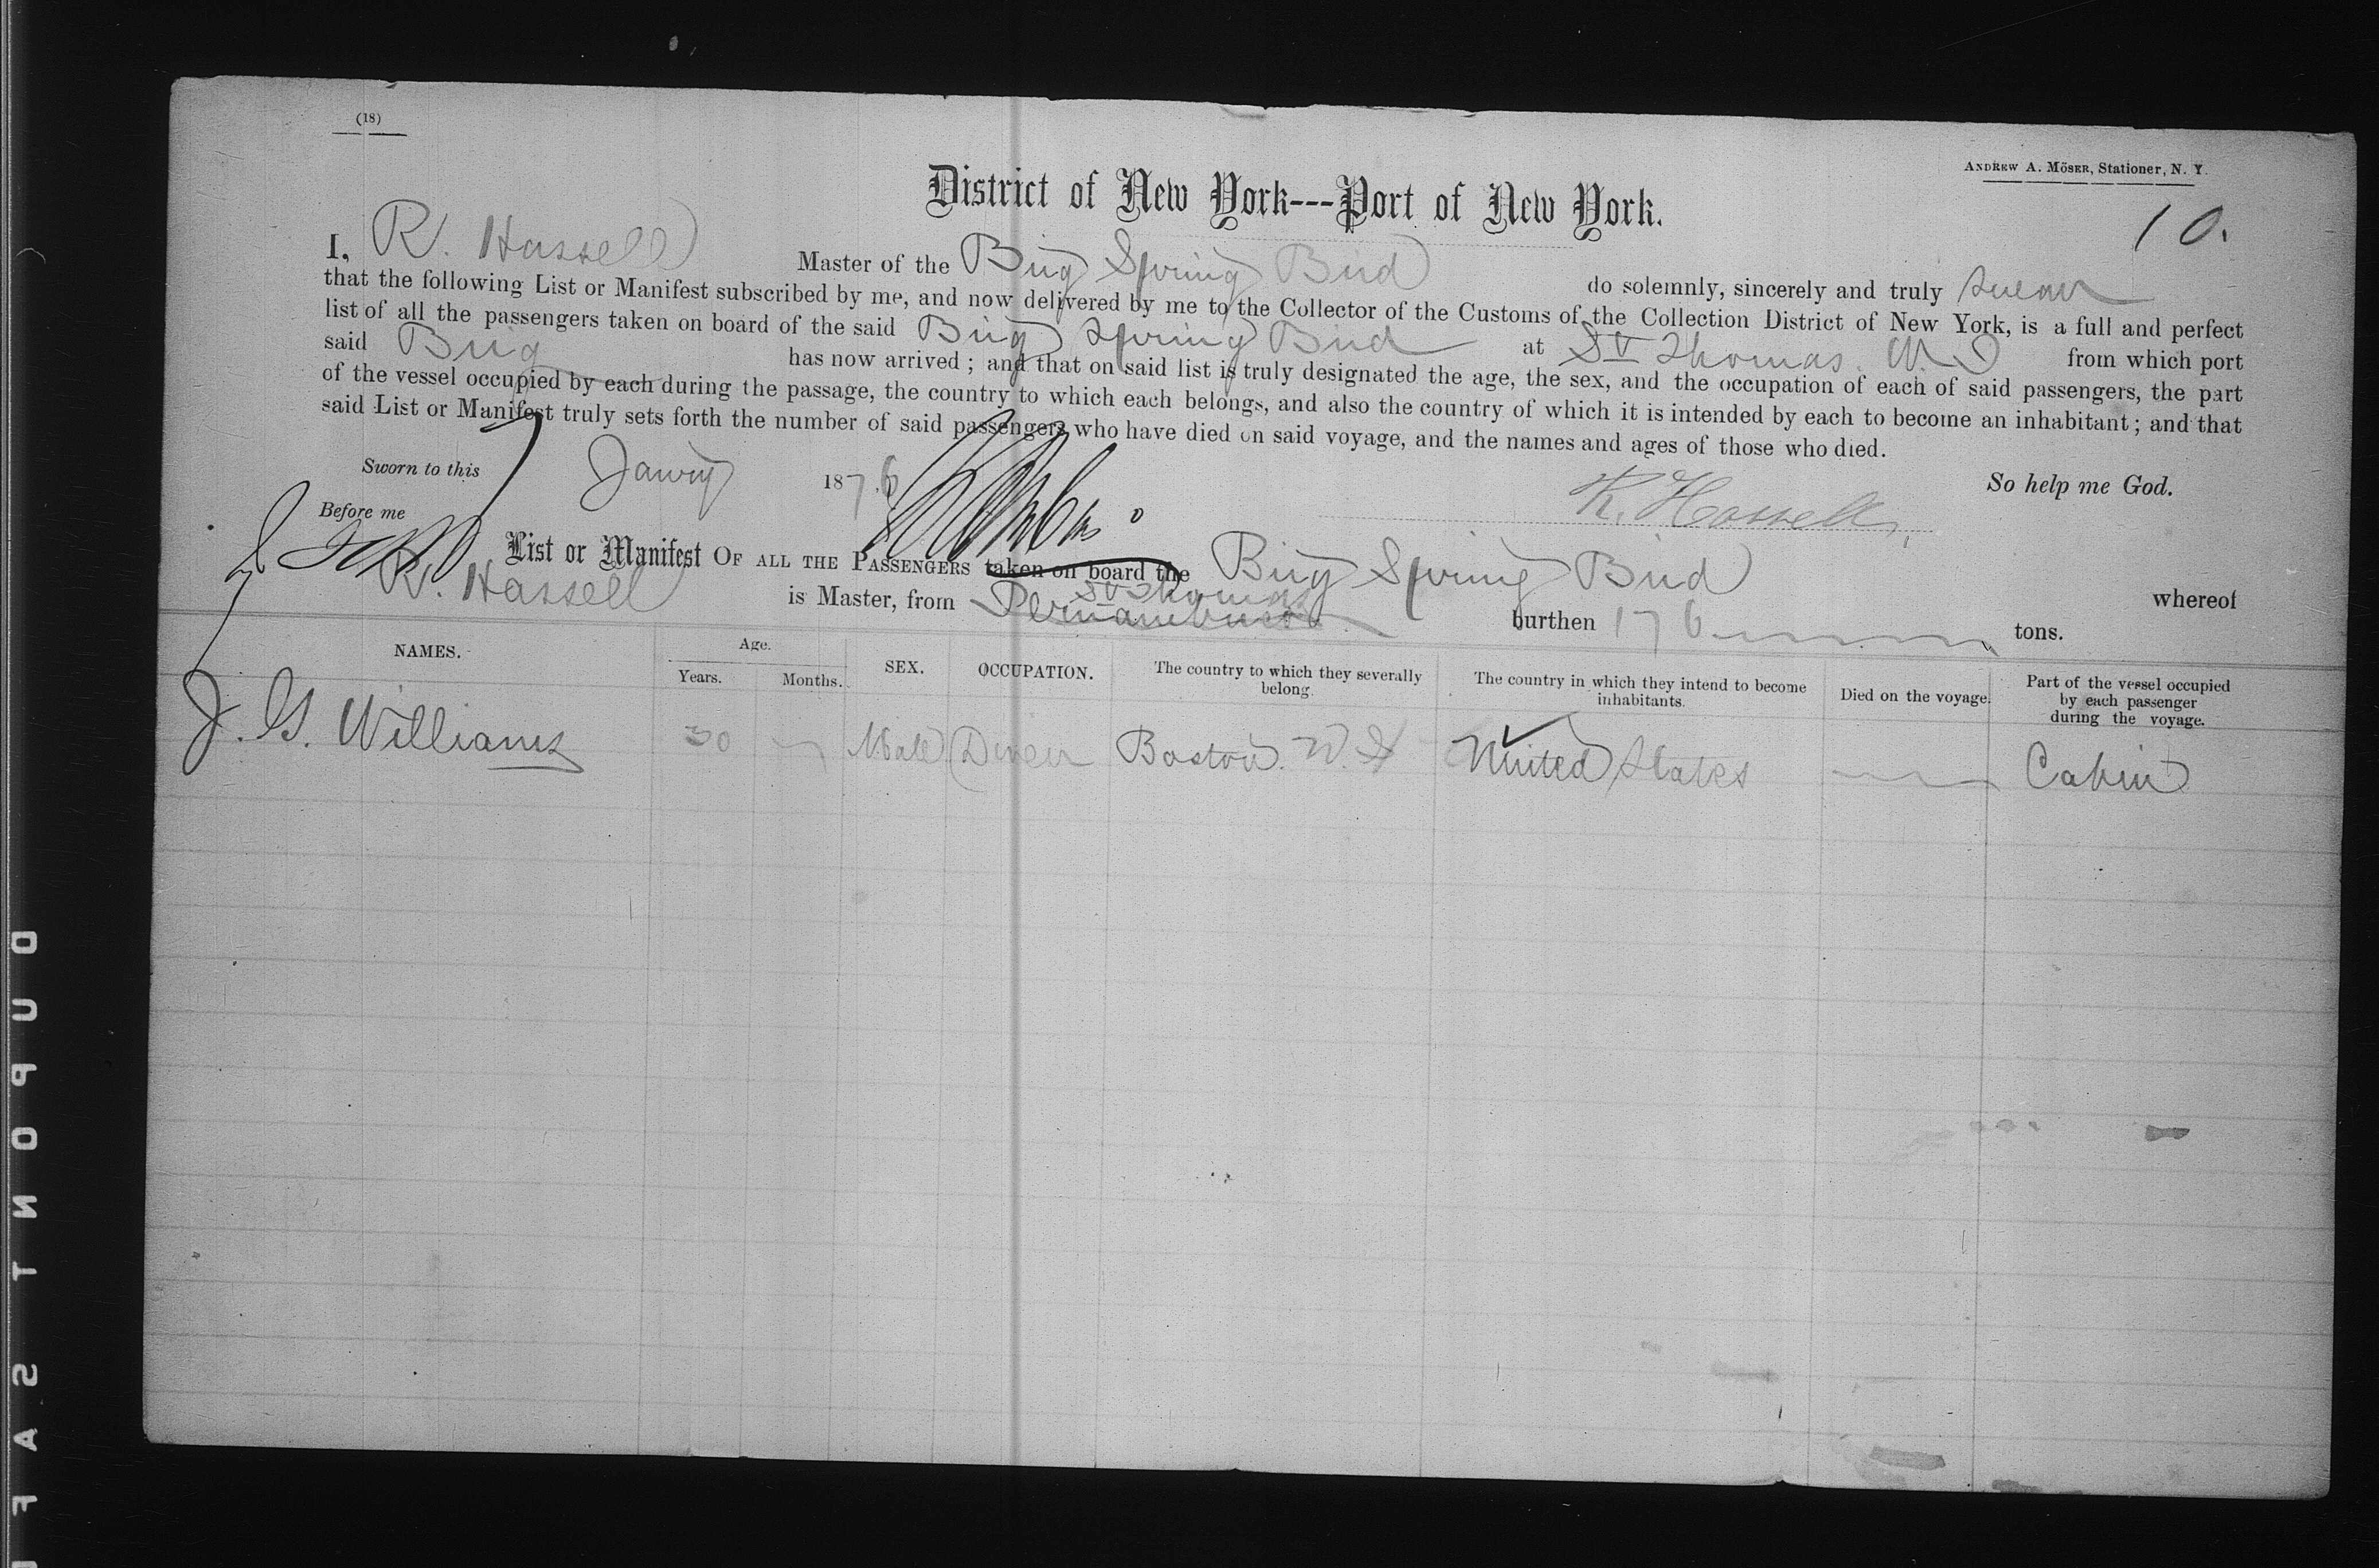 (18)
ANDREW A. MÖSER, Stationer, N. Y.
District of New York---Port of New York.
10.
I, R. Hassell Master of the Brig Spring Bird do solemnly, sincerely and truly swear
that the following List or Manifest subscribed by me, and now delivered by me to the Collector of the Customs of the Collection District of New York, is a full and perfect
list of all the passengers taken on board of the said Brig Spring Bird at St Thomas. W.I from which port
said Brig has now arrived; and that on said list is truly designated the age, the sex, and the occupation of each of said passengers, the part
of the vessel occupied by each during the passage, the country to which each belongs, and also the country of which it is intended by each to become an inhabitant; and that
said List or Manifest truly sets forth the number of said passengers who have died on said voyage, and the names and ages of those who died.
Sworn to this 7 Jan'ry 1876 So help me God.
R. Hassell
Before me
List or Manifest OF ALL THE PASSENGERS taken on board the Brig Spring Bird whereof
R. Hassell is Master, from Pernambuco St Thomas burthen 176 tons.
NAMES. Age. Years. Months. SEX. OCCUPATION. The country to which they severally belong. The country in which they intend to become inhabitants. Died on the voyage. Part of the vessel occupied by each passenger during the voyage.
J. G. Williams 30 Male Diver Boston. United States Cabin